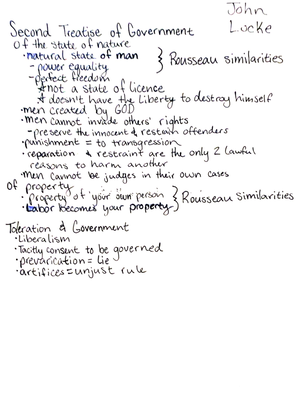 John
Locke
Second Treatise of Government
Of the state of nature
• natural state of man
- power equality
- perfect freedom
} Rousseau similarities
* not a state of licence
* doesn't have the liberty to destroy himself
• men created by GOD
• men cannot invade others' rights
- preserve the innocent & restrain offenders
• punishment = to transgression
• reparation & restraint are the only 2 lawful
reasons to harm another
• men cannot be judges in their own cases
Of property
• property of 'your own person
• Labor becomes your property
} Rousseau Similarities
Toleration & Government
• Liberalism
• Tacitly consent to be governed
• prevarication = lie
• artifices = unjust rule